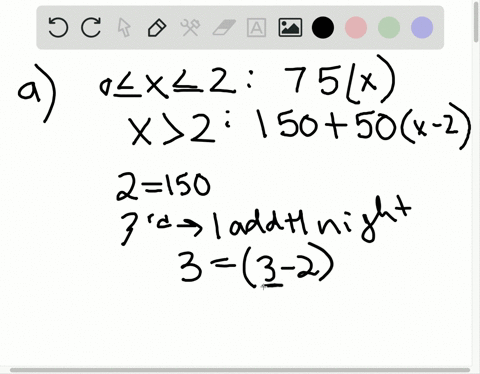 a) 0≤x≤2: 75(x)
x>2: 150+50(x-2)
2=150
3rd→1 addtl night
3=(3-2)